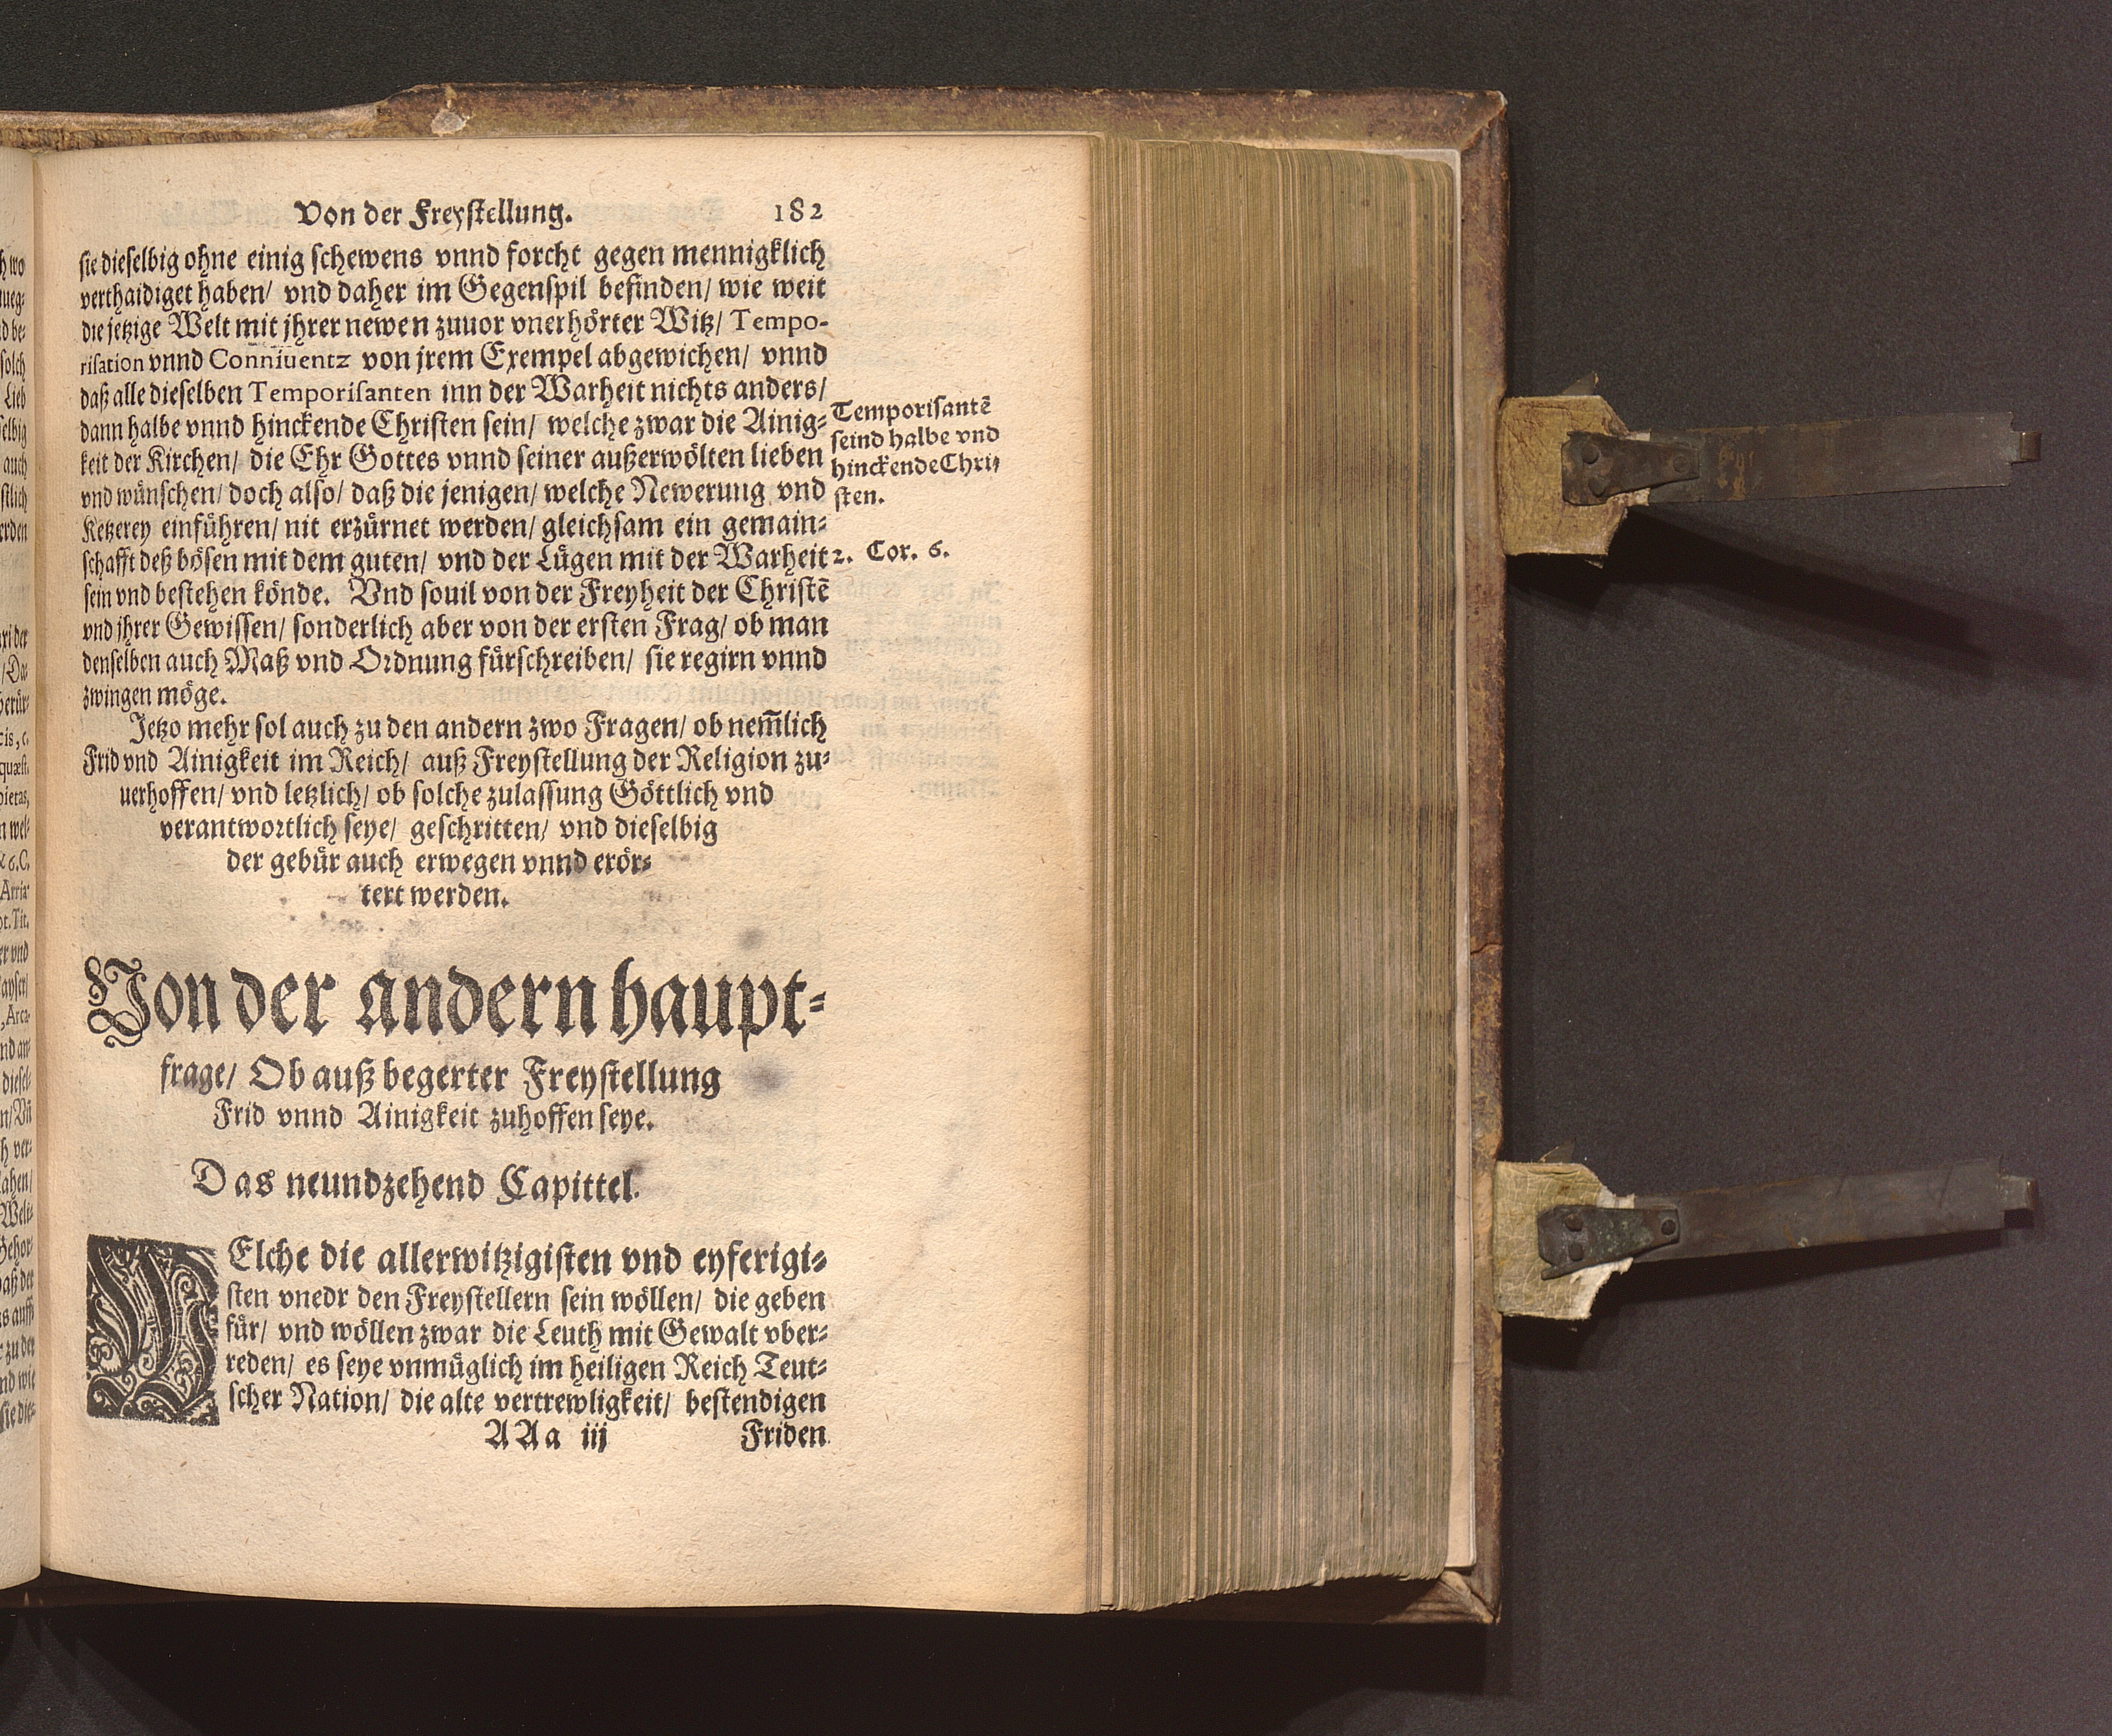 Von der Freystellung. 182
sie dieselbig ohne einig schewens vnnd forcht gegen mennigklich
verthaidiget haben/ vnd daher im Gegenspil befinden/ wie weit
die jetzige Welt mit jhrer newen zuuor vnerhörter Witz/ Tempo-
risation vnnd Conniuentz von jrem Exempel abgewichen/ vnnd
daß alle dieselben Temporisanten inn der Warheit nichts anders/
dann halbe vnnd hinckende Christen sein/ welche zwar die Ainig-
keit der Kirchen/ die Ehr Gottes vnnd seiner außerwölten lieben
vnd wünschen/ doch also/ daß die jenigen/ welche Newerung vnd
Ketzerey einführen/ nit erzürnet werden/ gleichsam ein gemain-
schafft deß bösen mit dem guten/ vnd der Lügen mit der Warheit
sein vnd bestehen könde. Vnd souil von der Freyheit der Christē
vnd jhrer Gewissen/ sonderlich aber von der ersten Frag/ ob man
denselben auch Maß vnd Ordnung fürschreiben/ sie regirn vnnd
zwingen möge.
Temporisantē
seind halbe vnd
hinckende Chri-
sten.
2. Cor. 6.
Jetzo mehr sol auch zu den andern zwo Fragen/ ob nem̄lich
Frid vnd Ainigkeit im Reich/ auß Freystellung der Religion zu-
uerhoffen/ vnd letzlich/ ob solche zulassung Göttlich vnd
verantwortlich seye/ geschritten/ vnd dieselbig
der gebür auch erwegen vnnd erör-
tert werden.
Von der andern haupt-
frage/ Ob auß begerter Freystellung
Frid vnnd Ainigkeit zuhoffen seye.
Das neundzehend Capittel.
WElche die allerwitzigisten vnd eyferigi-
sten vnedr den Freystellern sein wöllen/ die geben
für/ vnd wöllen zwar die Leuth mit Gewalt vber-
reden/ es seye vnmüglich im heiligen Reich Teut-
scher Nation/ die alte vertrewligkeit/ bestendigen
AAa iij Friden